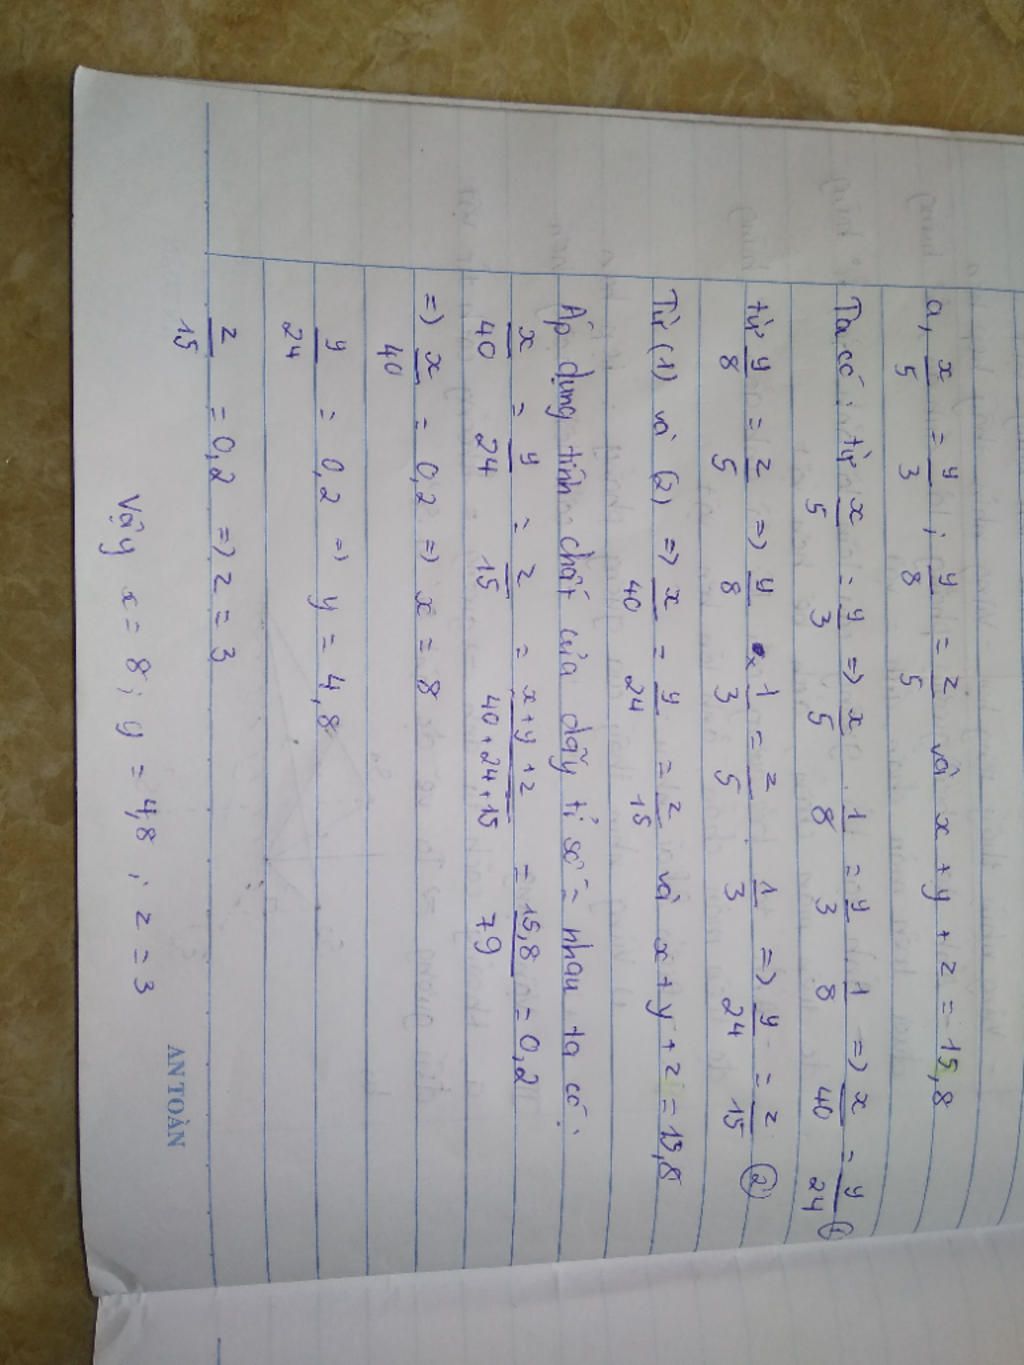 a, x/5 = y/3 ; y/8 = z/5 và x + y + z = 15,8
Ta có: từ x/5 = y/3 => x/5 . 1/8 = y/3 . 1/8 => x/40 = y/24 (1)
từ y/8 = z/5 => y/8 x 1/3 = z/5 . 1/3 => y/24 = z/15 (2)
Từ (1) và (2) => x/40 = y/24 = z/15 và x + y + z = 15,8
Áp dụng tính chất của dãy tỉ số = nhau ta có:
x/40 = y/24 = z/15 = x+y+z/40+24+15 = 15,8/79 = 0,2
=> x/40 = 0,2 => x = 8
y/24 = 0,2 => y = 4,8
z/15 = 0,2 => z = 3
Vậy x = 8 ; y = 4,8 ; z = 3
AN TOÀN